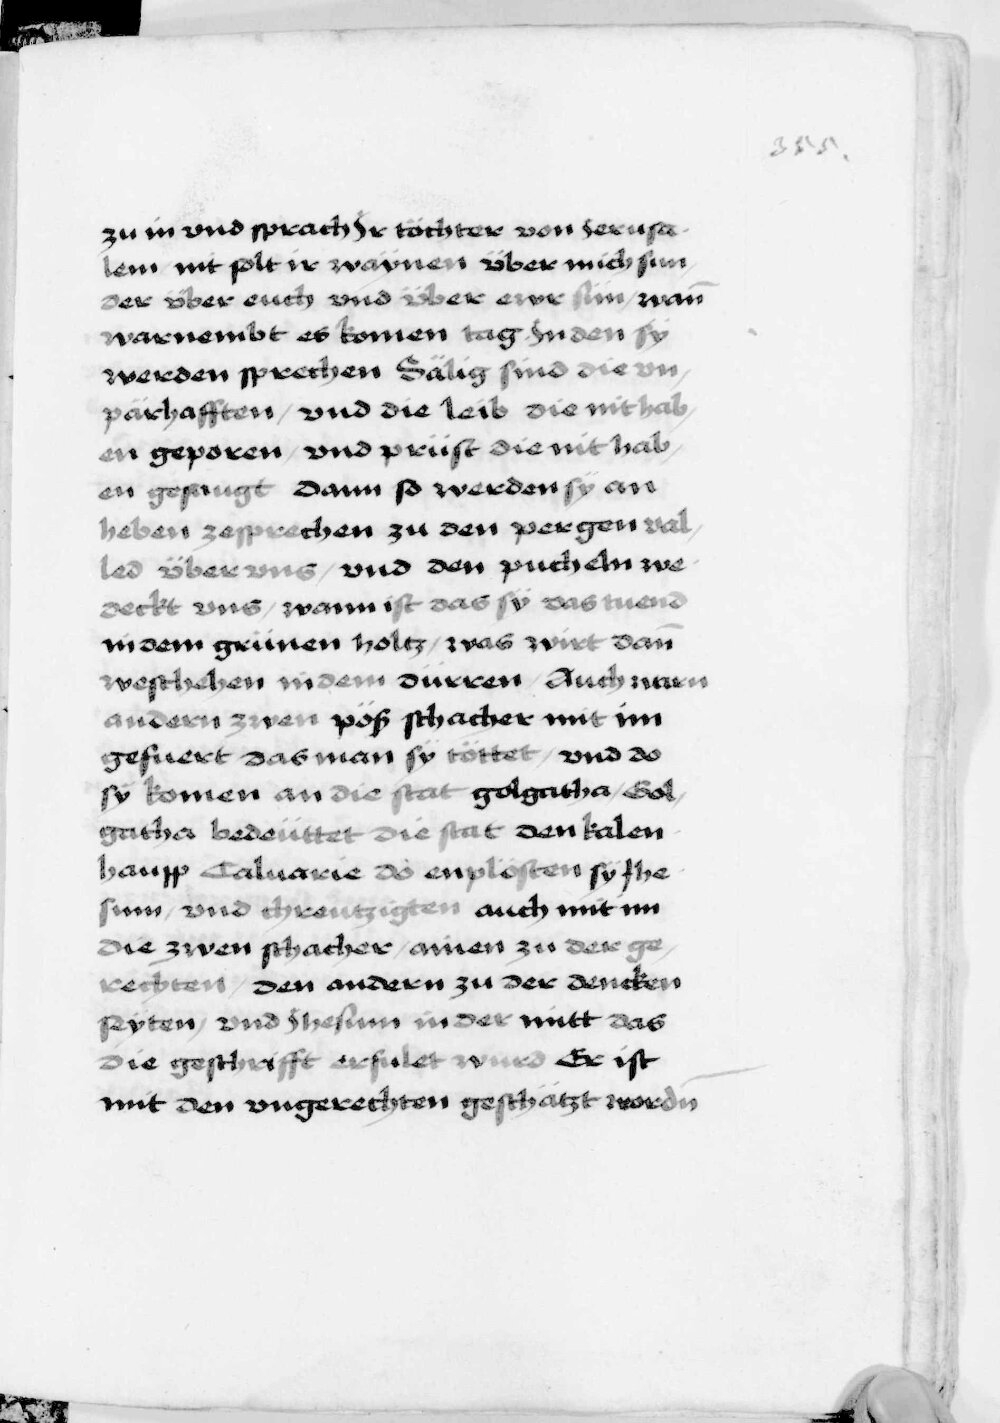 355.
zu in vnd sprach Ir töchter von Jerusa-
lem / nit solt ir waÿnen über mich sun/
der über euch vnd über ewr sün / wan̄
warnembt es komen tag In den sÿ
werden sprechen Sälig sind die vn/
pärhafften / vnd die leib die nit hab/
en geporen / vnd prüst die nit hab/
en gesaugt Dann so werden sÿ an
heben zesprechen zu den pergen val/
led über vns / vnd den pucheln we-
deckt vns / wann ist das sÿ das tuend
in dem grünen holtz / was wirt dan̄
weschehen in dem dürren / Auch warn
andern zwen pöß schacher mit im
gefuert das man sÿ töttet / vnd do
sÿ komen an die stat golgatha / Gol/
gatha bedeüttet die stat den kalen
haupp Caluarie do enplösten sÿ Jhe-
sum / vnd chreutzigten auch mit im
die zwen schacher / ainen zu der ge/
rechten / den andern zu der dencken
seÿten / vnd Jhesum in der mitt das
die geschrifft erfulet wurd Er ist
mit den vngerechten geschätzt wordn̄